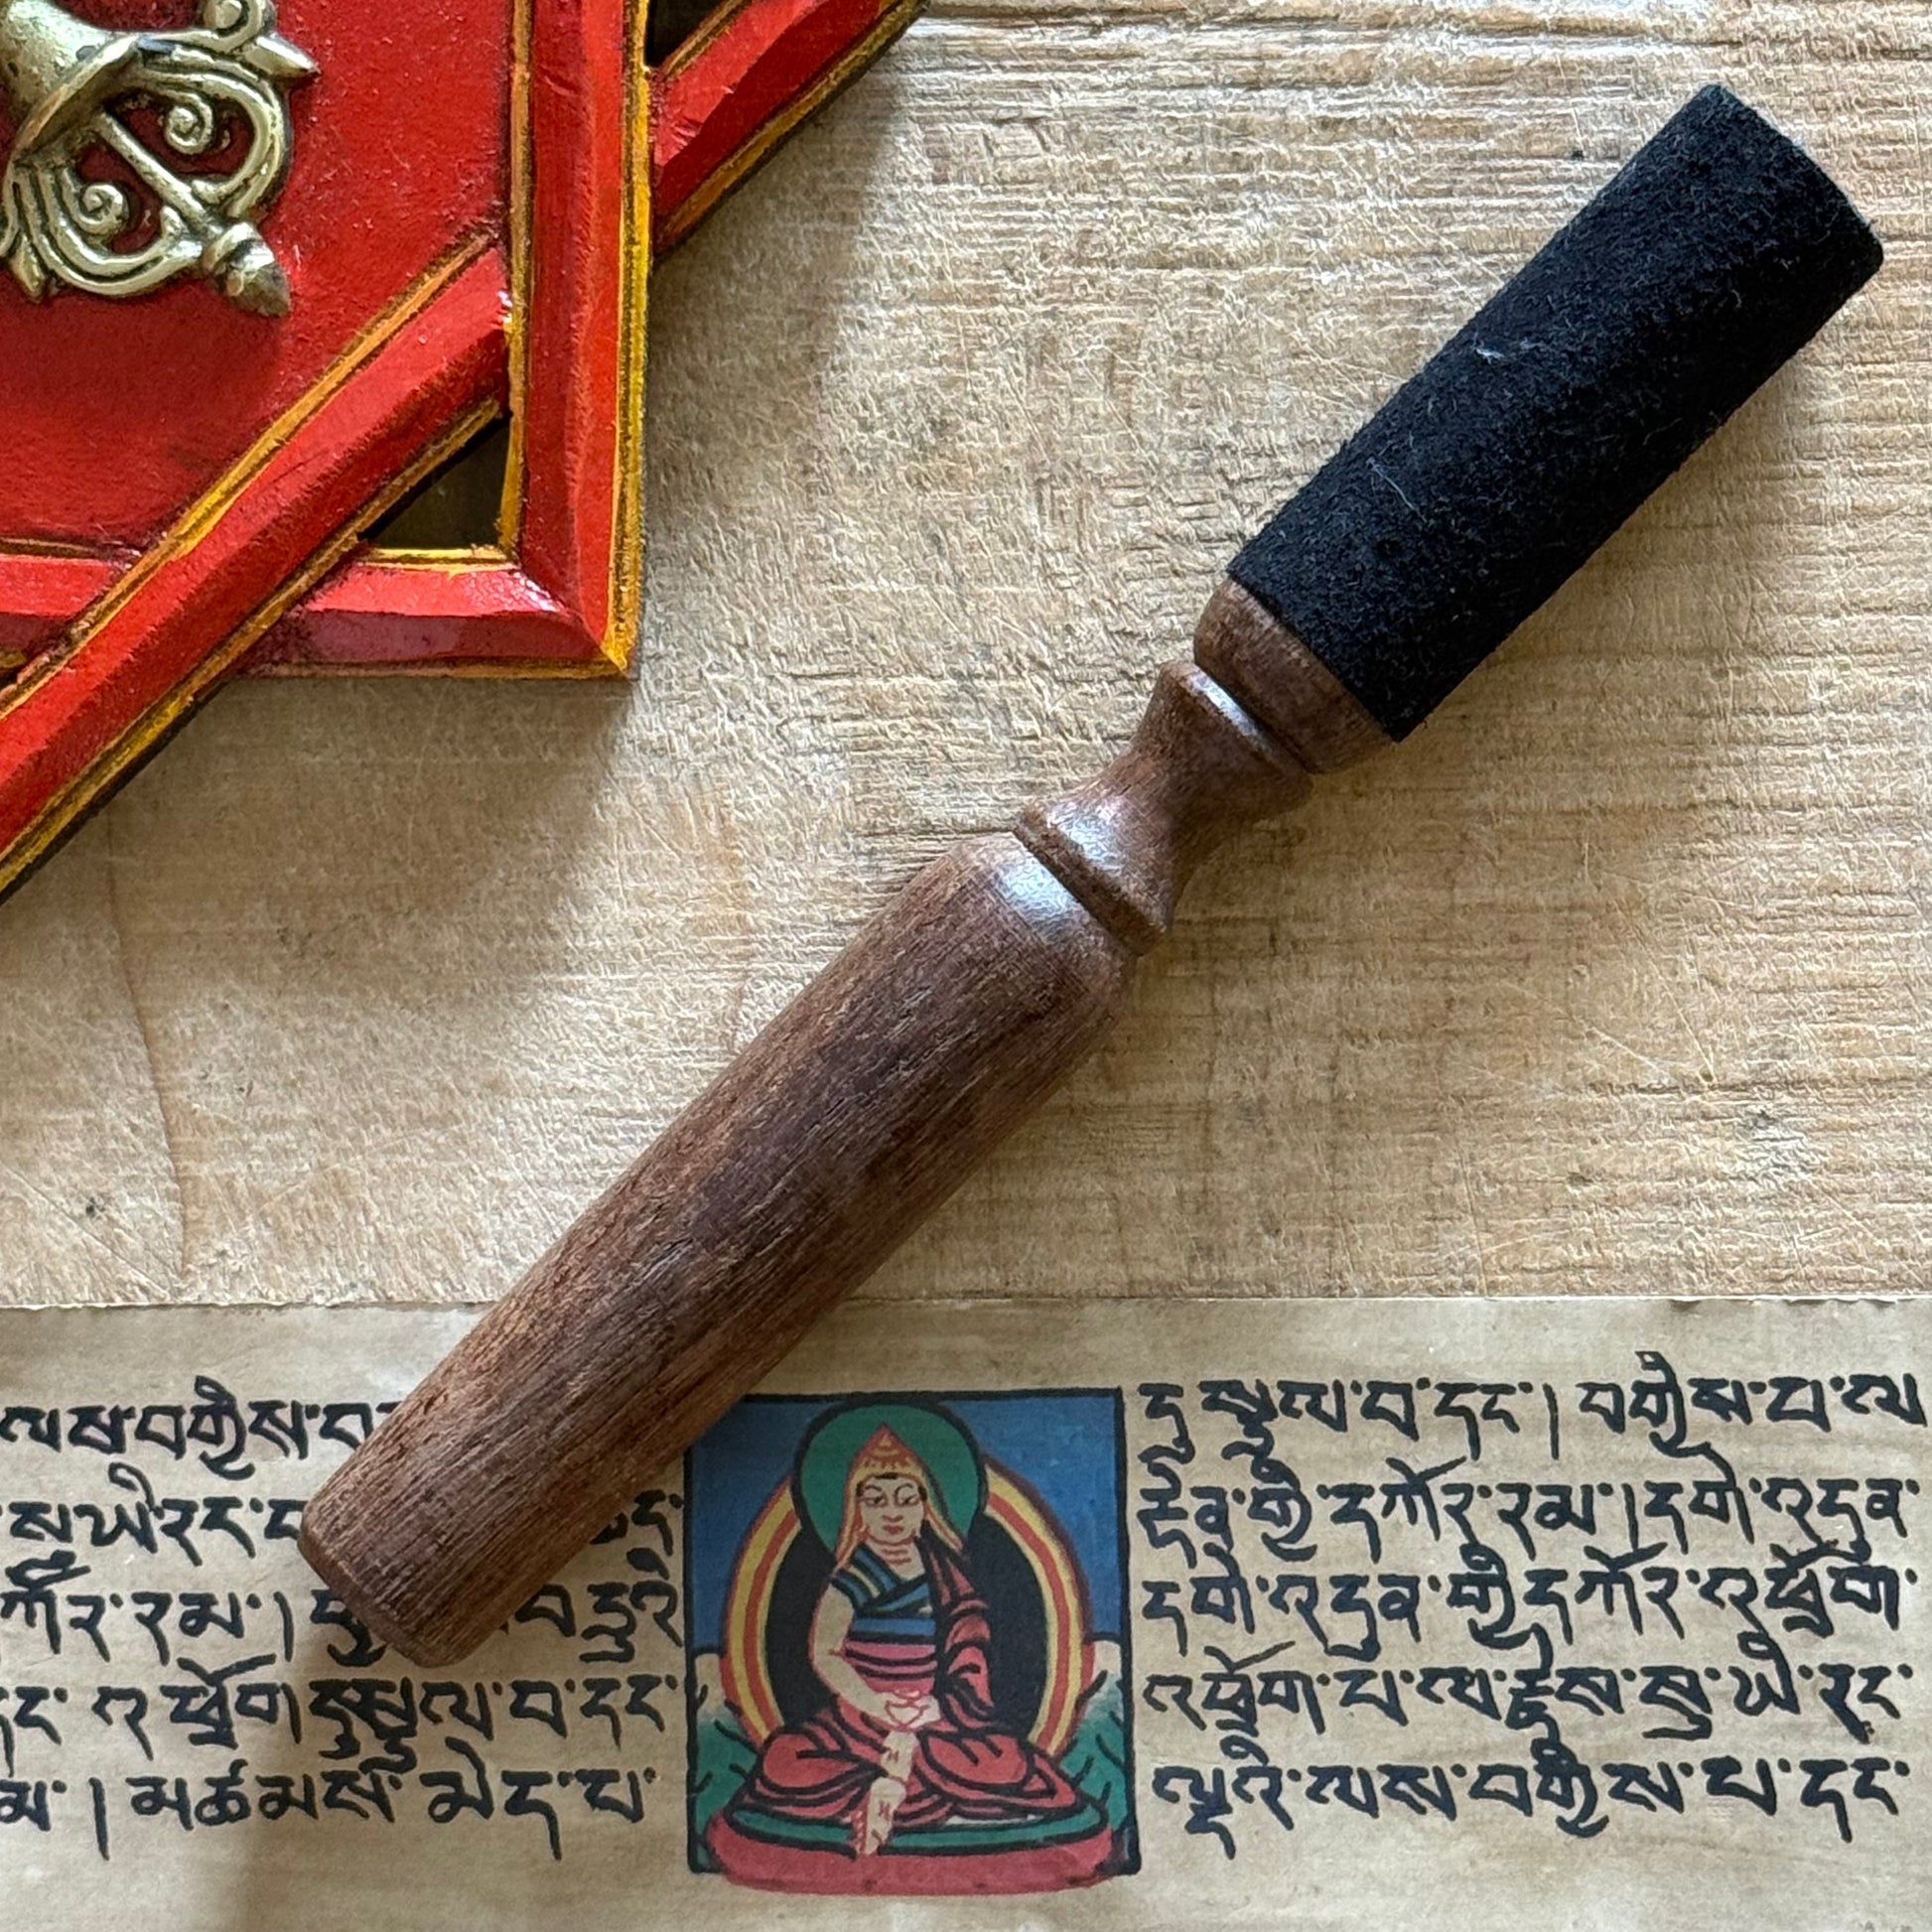 ལས་བགྱིས་བ
སུ་ཡི་རང་བ
ཀོར་རམ། བ་དུའི
དང་ འཕྲོག །དུ་སྩལ་བ་དང་
མ་ །མཚམས་མེད་པ་
དུ་སྩལ་བ་དང་། བགྱིས་པ་ལ
གྱི་དཀོར་རམ།དགེ་འདུན་
དགེ་འདུན་གྱི་དཀོར་འཕྲོག་
འཕྲོག་པ་ལ་རྗེས་སུ་ཡི་རང་
ལྔའི་ལས་བགྱིས་པ་དང་